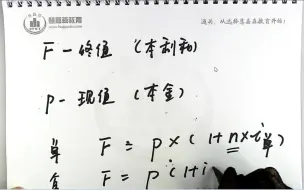 慧嘉森教育
通关,从选择慧嘉森教育开始!
F-终值 (本利和)
P-现值 (本金)
单 F = P×(1+n×i单)
F = P (1+i